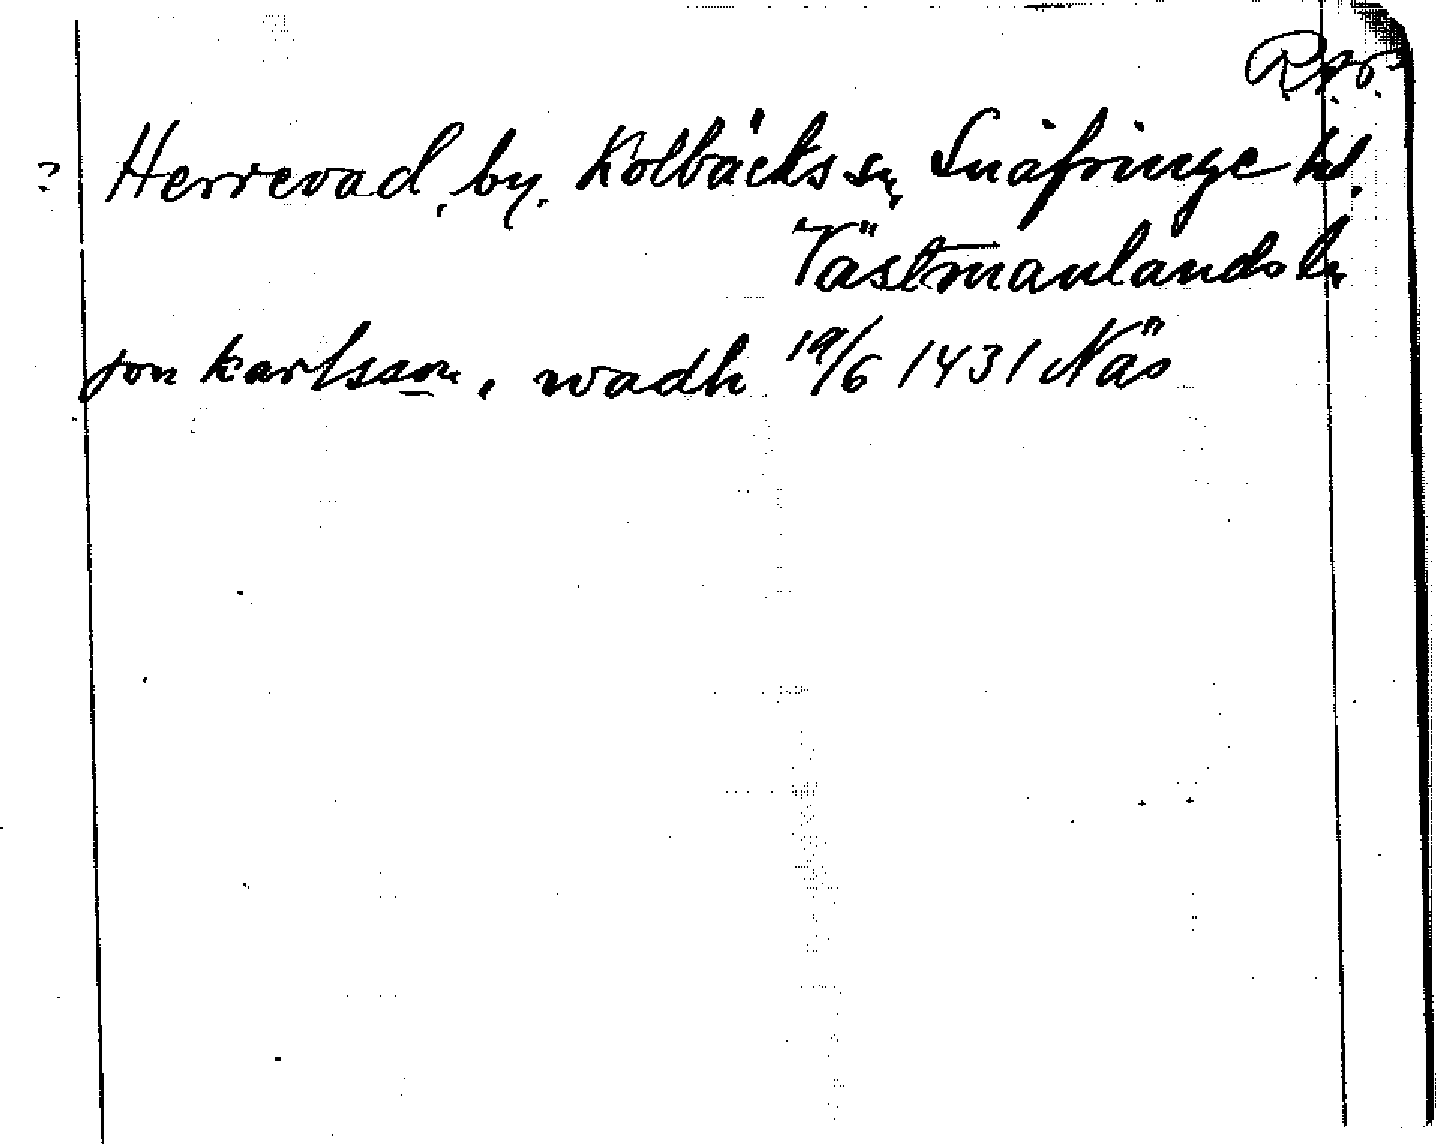 R.A.P.
? Herrevad, by. Kolbäcks sn, Snäfringe hd.
Västmanlands ln
jon karlsson, wadh 19/6 1431 Näs